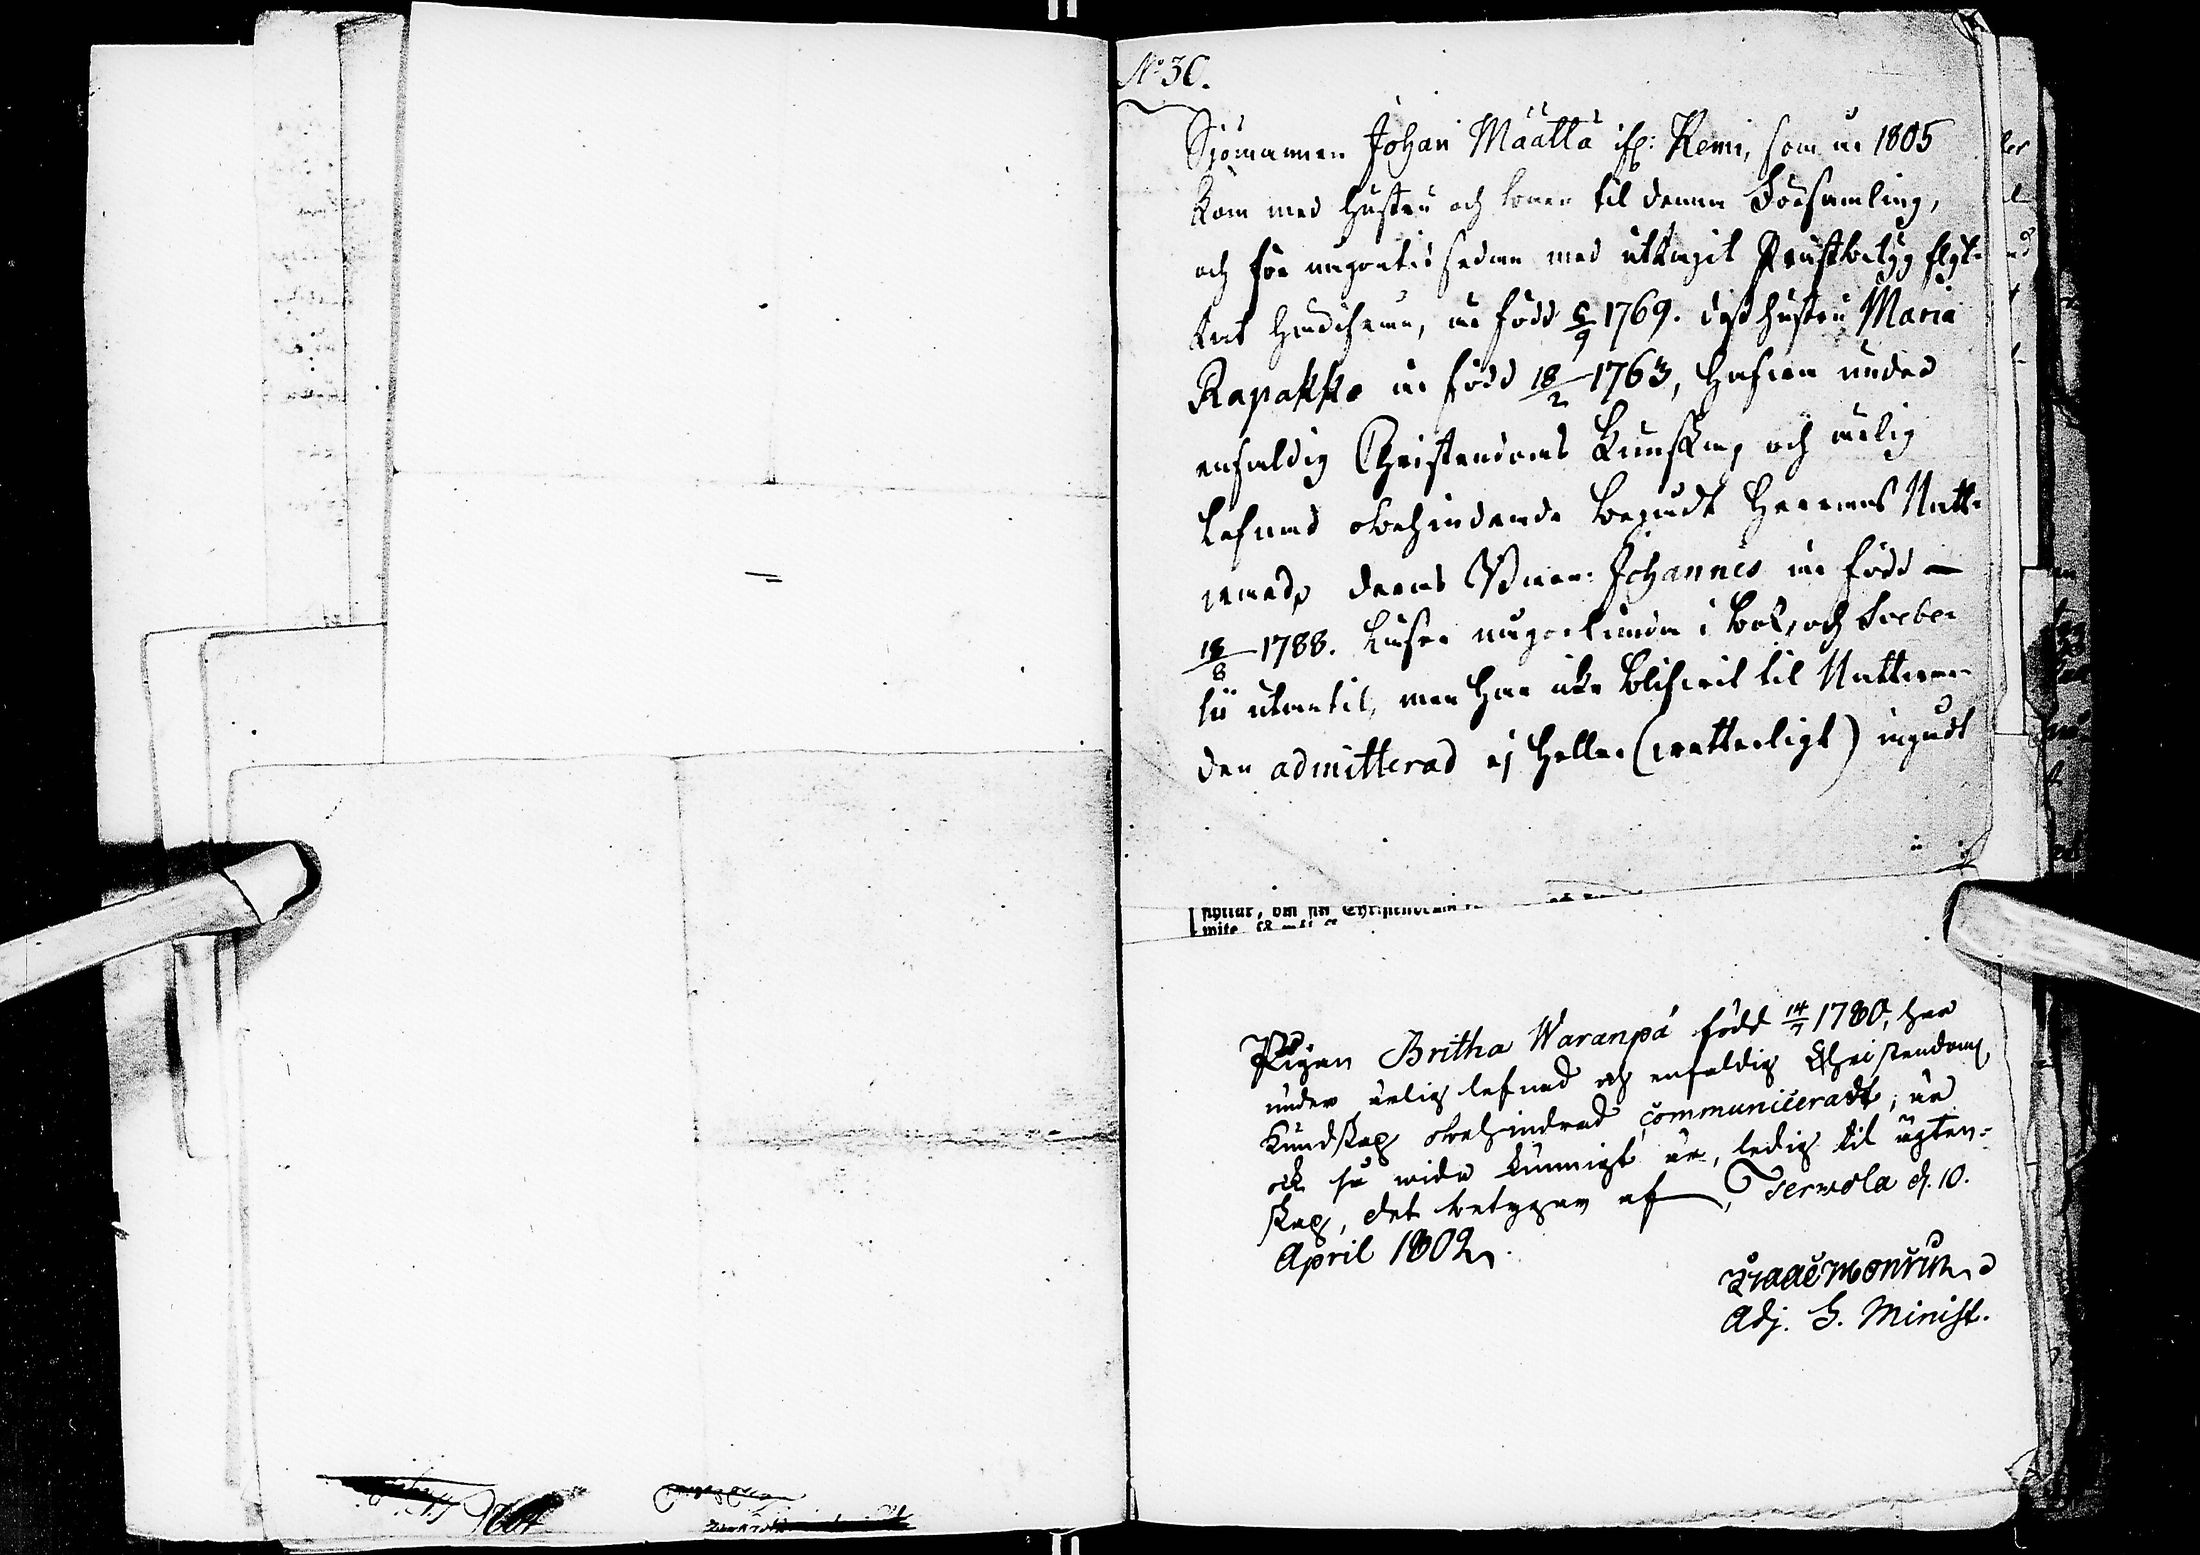 No 30.
Sjömannen Johan Määttä if: Kemi, som år 1805
kom med hustru och barn til denna Församling,
och för någon tid sedan med uttagit Prästbetyg flyt-
tat härifrån, är född 9 1769. dess hustru Maria
Rapakko är född 18/2 1763, hafva under
enfaldig Christendoms Kunskap och ärlig
lefnad obehindrade begådt Herrans Natt-
vard, deras Son Johannes är född
18/8 1788. Läser någorlunda i bok, och
utantil, men har icke blifvit til Nattvar-
den admitterad ej heller (wetterligt) ingådt
Pigan Britha Waranpä född 14/7 1780, har
under ärlig lefnad och enfaldig Christendoms
Kundskap obehindrad communicerat, är
ock så vida kunnigt är, ledig til ägten-
skap, det betygar af Terwola d. 10.
April 1802.
Adj. S. Minist.